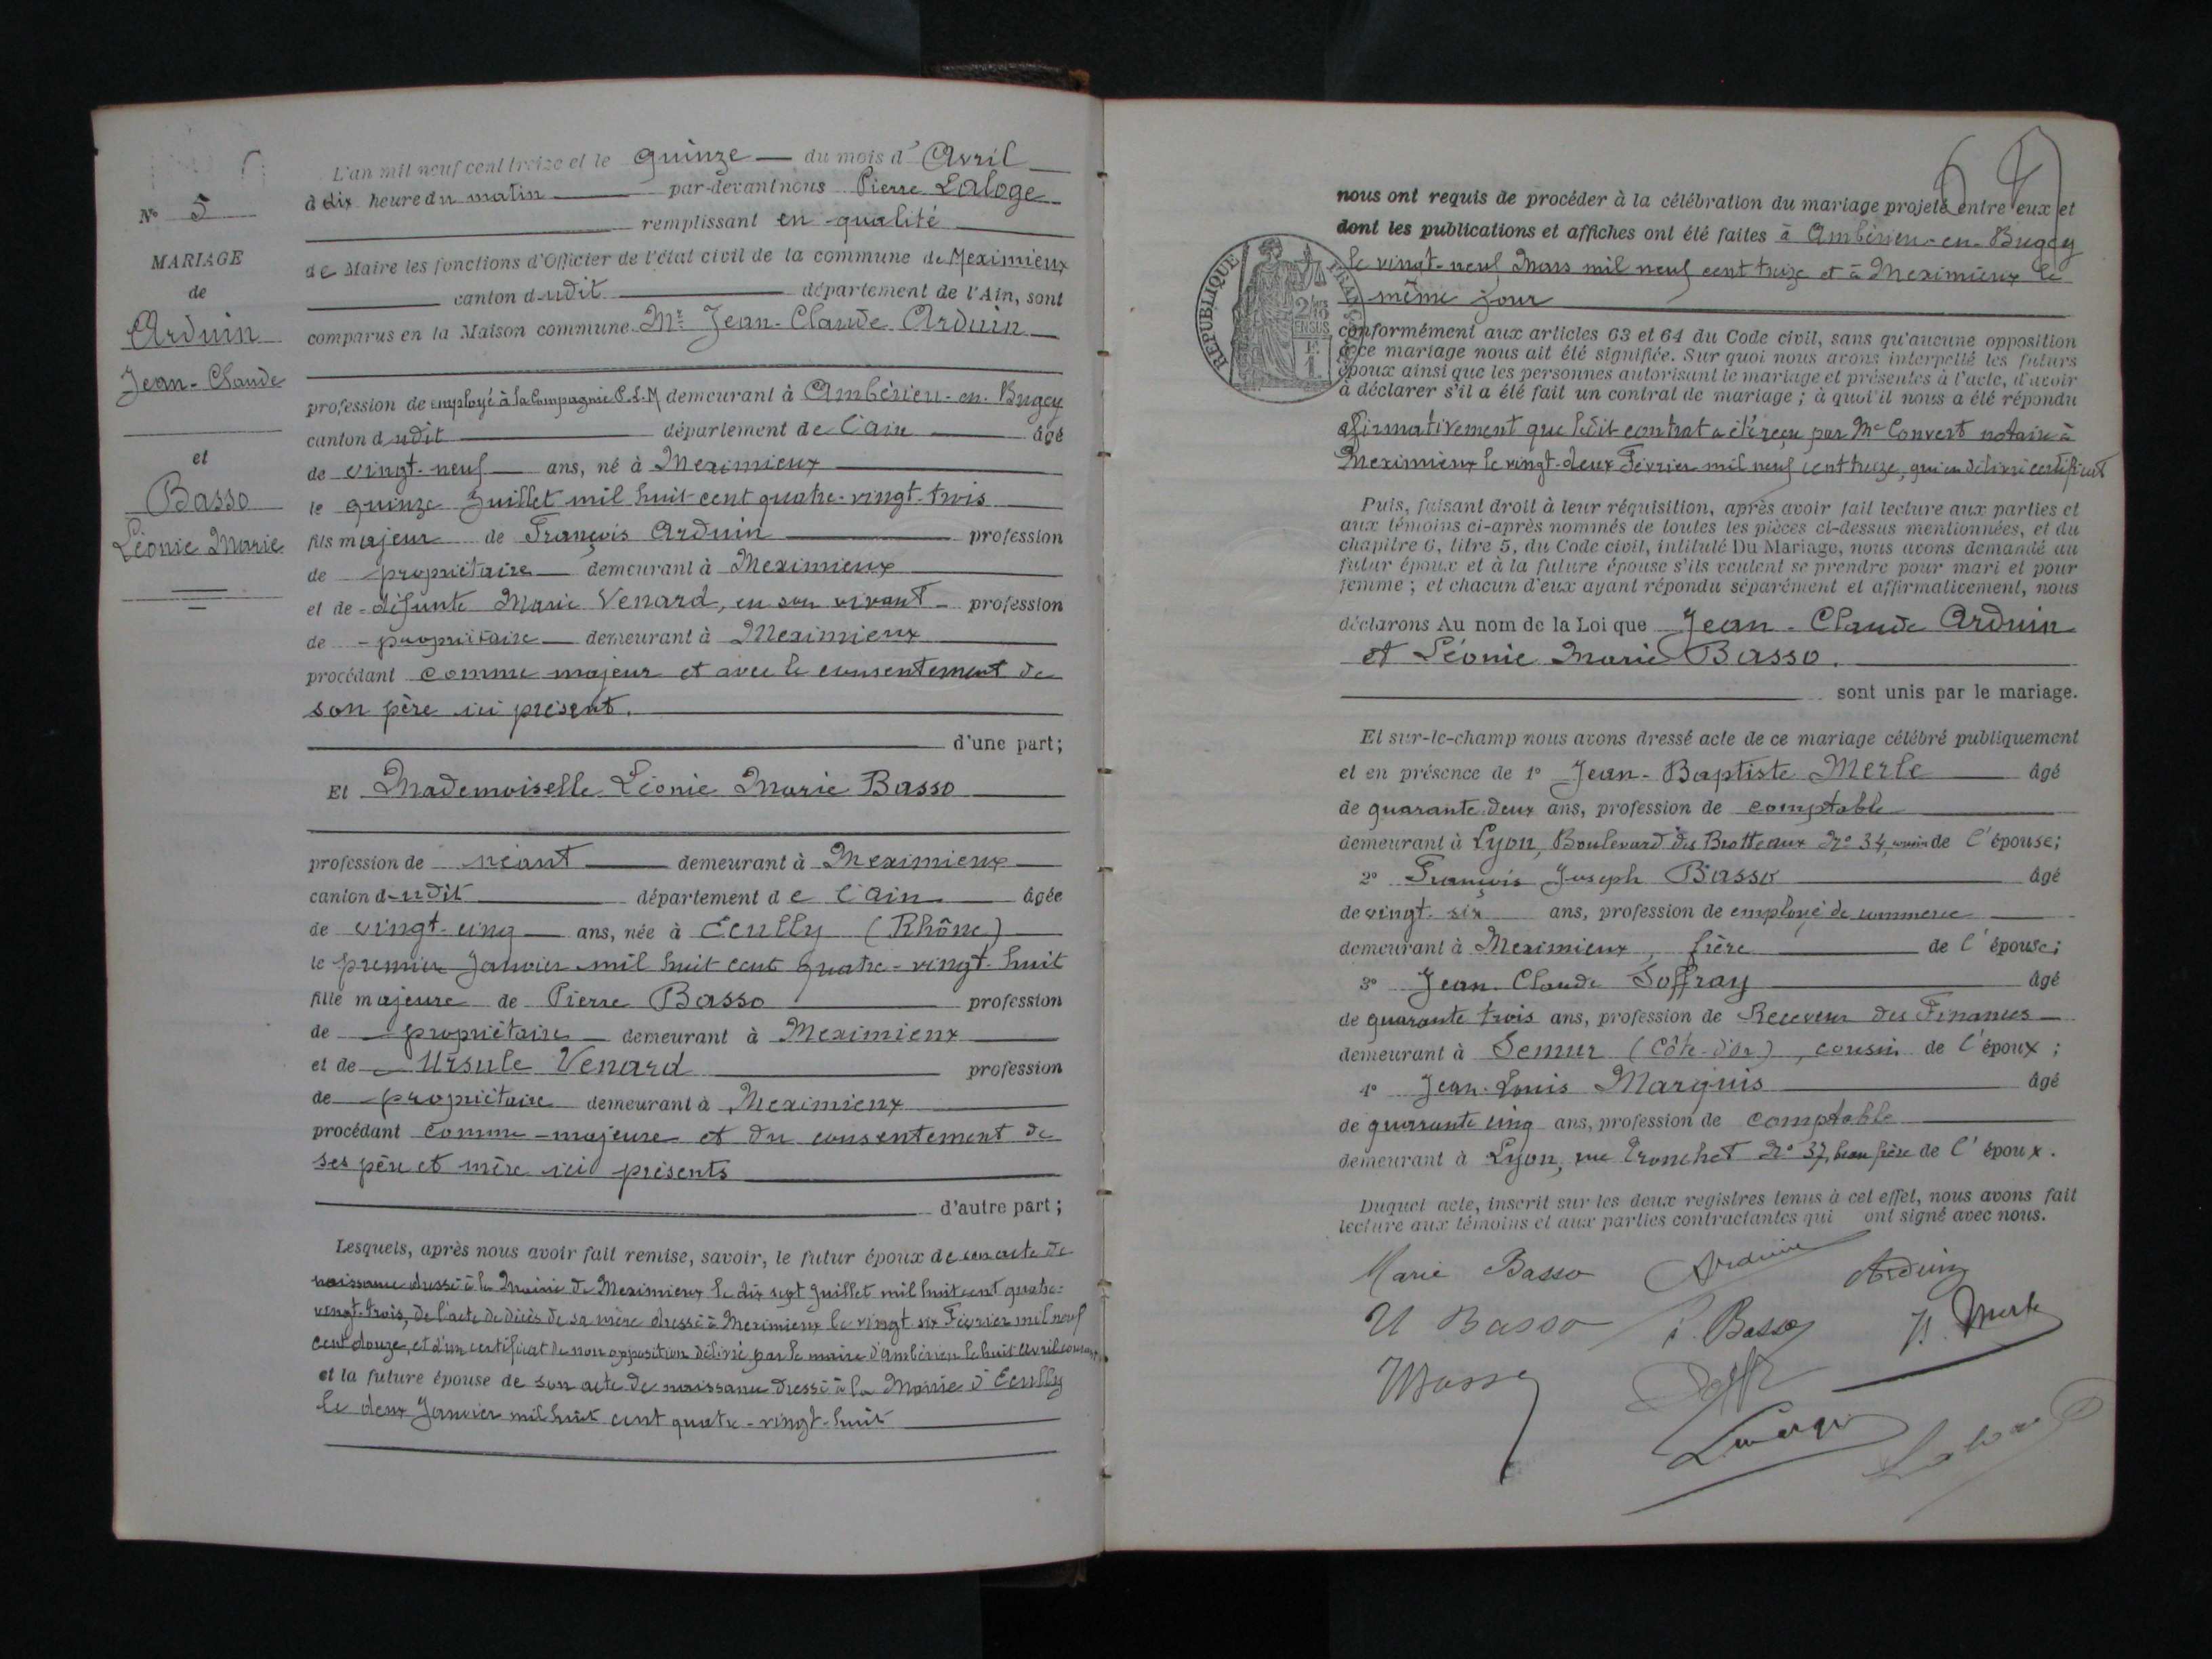 N° 5
MARIAGE
de
Arduin
Jean-Claude
et
Basso
Léonie Marie
L'an mil neuf cent treize et le quinze du mois d' Avril
à dix heure du matin par-devant nous Pierre Laloge
remplissant en qualité
de Maire les fonctions d'Officier de l'état civil de la commune de Meximieux
canton dudit département de l'Ain, sont
comparus en la Maison commune Mr Jean-Claude Arduin
profession de employé à la Compagnie P.L.M demeurant à Ambérieu-en-Bugey
canton dudit département de l'ain âgé
de vingt-neuf ans, né à Meximieux
le quinze Juillet mil huit cent quatre-vingt-trois
fils majeur de François Arduin profession
de propriétaire demeurant à Meximieux
et de défunte Marie Venard, en son vivant profession
de propriétaire demeurant à Meximieux
procédant comme majeur et avec le consentement de
son père ici présent.
d'une part;
Et Mademoiselle Léonie Marie Basso
profession de néant demeurant à Meximieux
canton dudit département de l'ain âgée
de vingt-cinq ans, née à Ecully (Rhône)
le premier Janvier mil huit cent quatre-vingt-huit
fille majeure de Pierre Basso profession
de propriétaire demeurant à Meximieux
et de Ursule Venard profession
de propriétaire demeurant à Meximieux
procédant comme majeure et du consentement de
ses père et mère ici présents
d'autre part;
Lesquels, après nous avoir fait remise, savoir, le futur époux de son acte de
naissance dressé à la Mairie de Meximieux le dix sept Juillet mil huit cent quatre-
vingt-trois, de l'acte de décès de sa mère dressé à Meximieux le vingt six Février mil neuf
cent douze, et d'un certificat de non opposition délivré par le maire d'Ambérieu le huit avril courant
et la future épouse de son acte de naissance dressé à la Mairie d'Ecully
le deux Janvier mil huit cent quatre-vingt-huit
nous ont requis de procéder à la célébration du mariage projeté entre eux et
dont les publications et affiches ont été faites à Ambérieu-en-Bugey
le vingt-neuf Mars mil neuf cent treize et à Meximieux le
même jour
RÉPUBLIQUE FRANC
2/10 EN SUS
F.
1
conformément aux articles 63 et 64 du Code civil, sans qu'aucune opposition
à ce mariage nous ait été signifiée. Sur quoi nous avons interpellé les futurs
époux ainsi que les personnes autorisant le mariage et présentes à l'acte, d'avoir
à déclarer s'il a été fait un contrat de mariage; à quoi il nous a été répondu
affirmativement que ledit contrat a été reçu par Me Convert notaire à
Meximieux le vingt-deux Février mil neuf cent treize, qui en délivré certificat
Puis, faisant droit à leur réquisition, après avoir fait lecture aux parties et
aux témoins ci-après nommés de toutes les pièces ci-dessus mentionnées, et du
chapitre 6, titre 5, du Code civil, intitulé Du Mariage, nous avons demandé au
futur époux et à la future épouse s'ils veulent se prendre pour mari et pour
femme; et chacun d'eux ayant répondu séparément et affirmativement, nous
déclarons Au nom de la Loi que Jean-Claude Arduin
et Léonie Marie Basso.
sont unis par le mariage.
Et sur-le-champ nous avons dressé acte de ce mariage célébré publiquement
et en présence de 1° Jean-Baptiste Merle âgé
de quarante deux ans, profession de comptable
demeurant à Lyon, Boulevard des Brotteaux N° 34, cousin de l'épouse;
2° François Joseph Basso âgé
de vingt-six ans, profession de employé de commerce
demeurant à Meximieux, frère de l'épouse;
3° Jean Claude Soffray âgé
de quarante trois ans, profession de Receveur des Finances
demeurant à Semur (Côte-d'Or), cousin de l'époux;
4° Jean-Louis Marquis âgé
de quarante cinq ans, profession de comptable
demeurant à Lyon, rue Tronchet N° 37, beau frère de l'époux.
Duquel acte, inscrit sur les deux registres tenus à cet effet, nous avons fait
lecture aux témoins et aux parties contractantes qui ont signé avec nous.
Marie Basso Arduin Arduin
U Basso Basso J. Merle